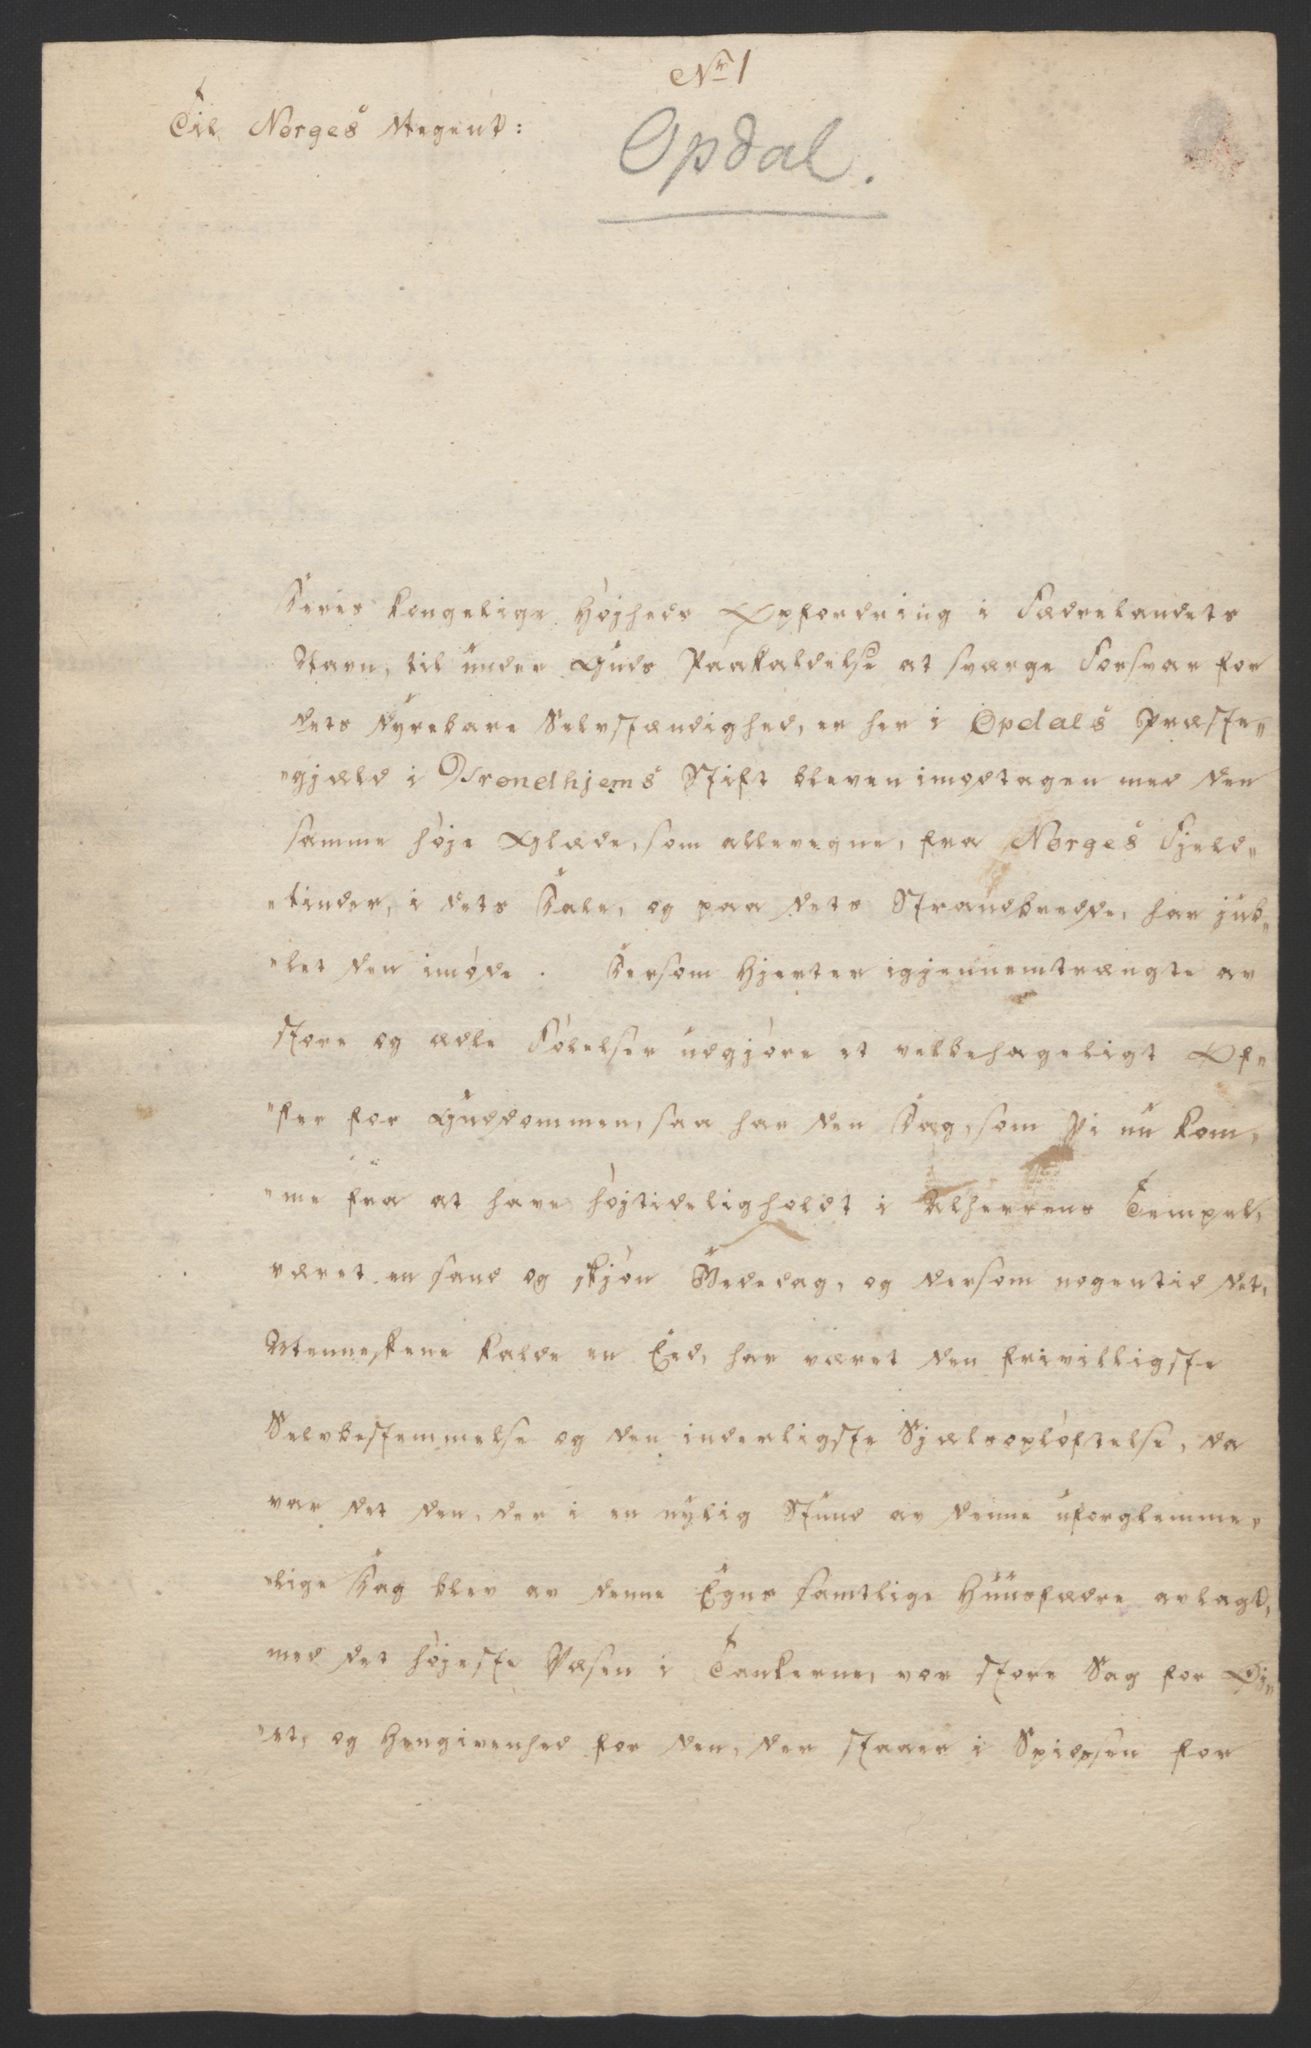 No 1
Til Norges Regent:
Opdal.
Deres kongelige Højheds Opfordring i Fædrelandets
Navn, til under Guds Paakaldelse at sværge Forsvar for
dets dyrebare Selvstændighed, er her i Opdals Præste„
„gjæld i Trondhjems Stift bleven imodtagen med den
samme høje Glæde, som allevegne, fra Norges Fjeld„
„tinder, i dets Dale, og paa dets Strandbredde, har jub„
„let den imøde. Dersom Hjerter igjennemtrængte av
store og ædle Følelser udgjøre et velbehageligt Of„
„fer for Guddommen, saa har den Dag, som Vi nu kom„
„me fra at have højtideligholdt i Alherrens Tempel,
været en sand og skjøn Bededag, og dersom nogentid det,
Menneskene kalde en Eed, har været den frivilligste
Selvbestemmelse og den inderligste Sjælsopløftelse, da
var det den, der i en nylig Stund av denne uforglemme„
„lige Dag blev av denne Egns samtlige Huusfædre avlagt,
med det højeste Væsen i Tankerne, vor store Sag for Øj„
„et, og Hengivenhed for den, der staaer i Spidsen for